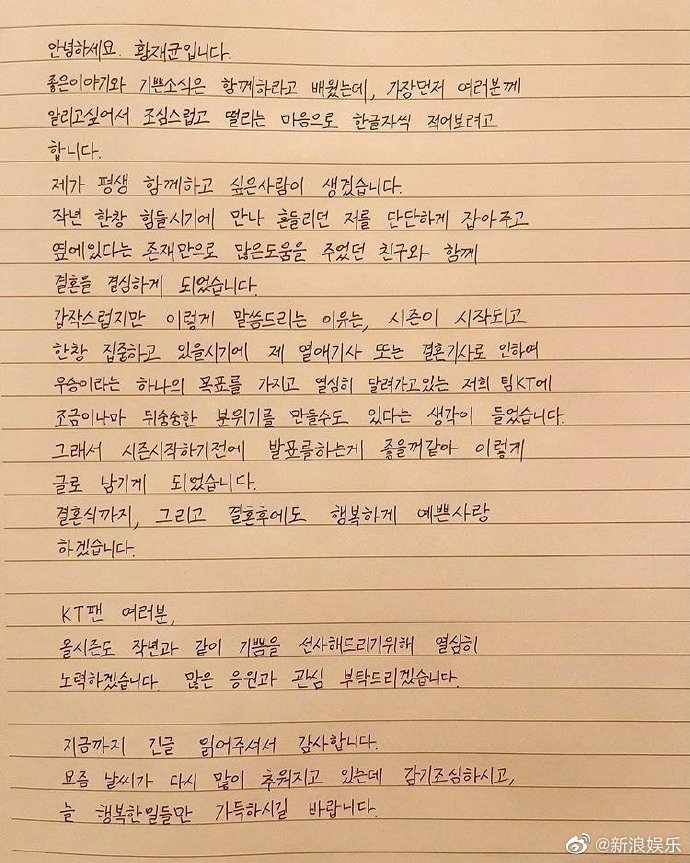 안녕하세요. 황재균입니다.
좋은이야기와 기쁜소식은 함께하라고 배웠는데, 가장먼저 여러분께
알리고싶어서 조심스럽고 떨리는 마음으로 한글자씩 적어보려고
합니다.
제가 평생 함께하고 싶은사람이 생겼습니다.
작년 한창 힘들시기에 만나 흔들리던 저를 단단하게 잡아주고
옆에있다는 존재만으로 많은도움을 주었던 친구와 함께
결혼을 결심하게 되었습니다.
갑작스럽지만 이렇게 말씀드리는 이유는, 시즌이 시작되고
한창 집중하고 있을시기에 제 열애기사 또는 결혼기사로 인하여
우승이라는 하나의 목표를 가지고 열심히 달려가고있는 저희 팀KT에
조금이나마 뒤숭숭한 분위기를 만들수도 있다는 생각이 들었습니다.
그래서 시즌시작하기전에 발표를하는게 좋을꺼같아 이렇게
글로 남기게 되었습니다.
결혼식까지, 그리고 결혼후에도 행복하게 예쁜사랑
하겠습니다.
KT팬 여러분,
올시즌도 작년과 같이 기쁨을 선사해드리기위해 열심히
노력하겠습니다. 많은 응원과 관심 부탁드리겠습니다.
지금까지 긴글 읽어주셔서 감사합니다.
요즘 날씨가 다시 많이 추워지고 있는데 감기조심하시고,
늘 행복한일들만 가득하시길 바랍니다.
@新浪娱乐